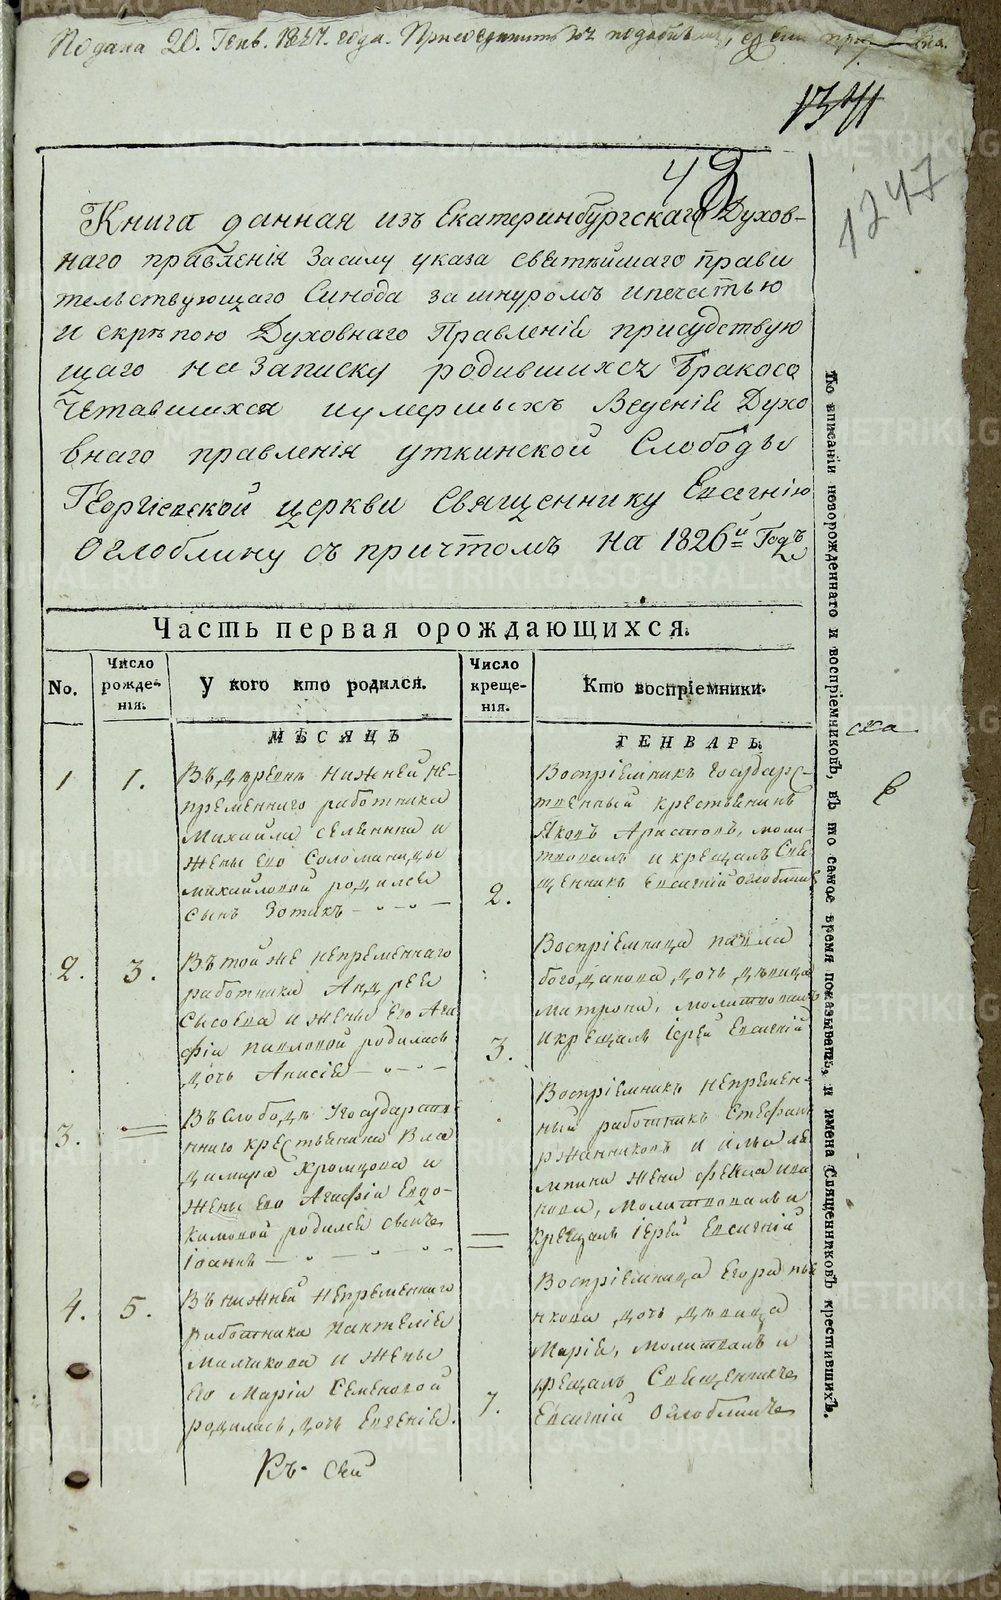 Подана 20. Генв. 1827. года. Присоединить къ подобнымъ,
1341
48
1247
Книга данная изъ Екатеринбургскаго Духов-
наго правленія Засилу указа святѣйшаго прави
тельствующаго Синода за шнуромъ ипечатью
и скрѣпою Духовнаго Правленія присудствую
щаго на Записку родившихся бракосо
четавшихся иумершыхъ Веденія Духо
внаго правленія уткинской Слободы
Георгіевской церкви Священнику Евсегнію
Оглоблину съ причтомъ на 1826й Годъ
Часть первая орождающихся.
No.
Число рожде-нія.
У кого кто родился.
Число креще-нія.
Кто воспріемники.
МѢСЯЦЪ
ГЕНВАРЬ
1
1.
Въ деревнѣ нижней не-
пременнаго работника
Михайла селянина и
жены его Соломаниды
михайловой родился
сынъ Зотикъ
2.
Воспріемникъ государс-
твенный крестьянинъ
Яковъ Аристовъ, моли-
твовалъ и крещалъ Свя
щенникъ Евсигній оглоблинъ
2.
3.
Въ тойже непременнаго
работника Андрея
Сысоева и жены его Ага
фіи павловой родилась
дочь Анисія
3.
Воспріемница павла
богданова дочь девица
матрона, молитвовалъ
икрещалъ Іерей Евсигній
3.
Въ Слободѣ Государств-
еннаго крестьянина Вла
димира Хромцова и
жены его Агафіи Евдо-
кимовой родился сынъ
Іоаннъ
Воспріемникъ непремен-
ный работникъ Стефанъ
ржанниковъ и
жена фекла
молитвовалъ и
крещалъ Іерей Евсигній
4.
5.
Въ нижней непременнаго
работника пантелія
Малчикова и жены
его Маріи Семеновой
родилась дочь Евгенія.
7.
Воспріемница Егора
дочь девица
Марія, молитвовалъ и
крещалъ Священникъ
Евсигній Оглоблинъ
Къ сей
По вписаніи новорожденнаго и воспріемниковъ, въ то самое время показывать, и имена Священниковъ крестившихъ.
METRIKI.GASO-URAL.RU